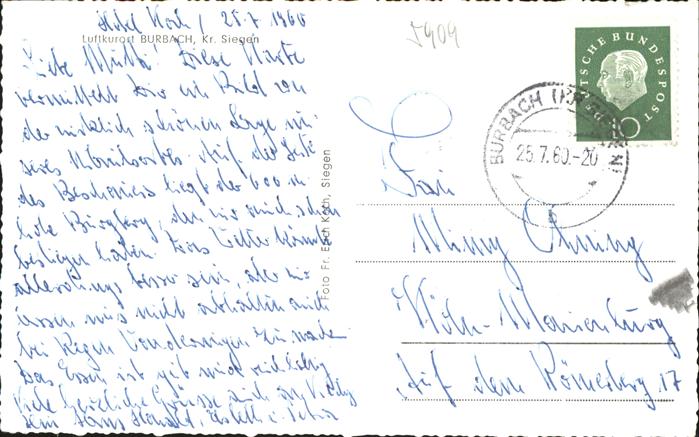 Hotel Koch / 25.7.1960
Luftkurort BURBACH, Kr. Siegen
Liebe Mutti! Diese Karte
vermittelt Dir ein Bild von
der wirklich schönen Lage un-
seres Auf der Seite
des Beschauers liegt der 600 m
hohe Burgberg, den wir auch schon
bestiegen haben. Das Wetter könnte
allerdings besser sein, aber wir
lassen uns nicht abhalten auch
bei Regen Wanderungen zu machen
Das Essen ist gut und reichlich
Viele herzliche Grüsse
Dein Hans
Foto Fr. Erich Koch, Siegen
5909
DEUTSCHE BUNDESPOST
10
BURBACH (KR SIEGEN)
25.7.60.-20
Frau
Minny
Köln-Marienburg
Auf dem Römerberg 17